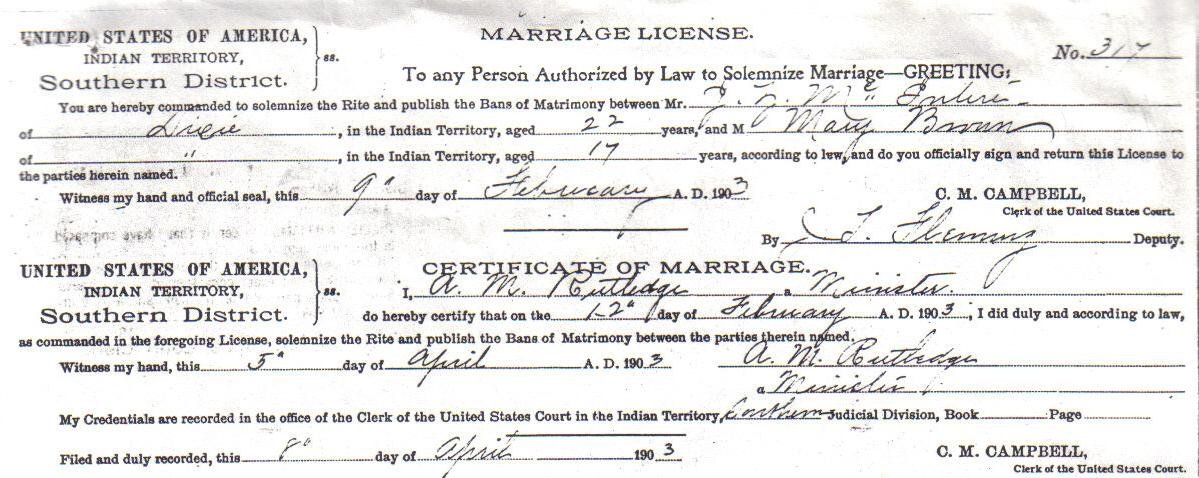 MARRIAGE LICENSE.
No. 317
UNITED STATES OF AMERICA,
INDIAN TERRITORY,
Southern District.
ss.
To any Person Authorized by Law to Solemnize Marriage—GREETING:
You are hereby commanded to solemnize the Rite and publish the Bans of Matrimony between Mr.
of Dixie, in the Indian Territory, aged 22 years, and M Mary Brown
of ", in the Indian Territory, aged 17 years, according to law, and do you officially sign and return this License to
the parties herein named.
Witness my hand and official seal, this 9" day of February A. D. 1903
C. M. CAMPBELL,
Clerk of the United States Court.
By Fleming Deputy.
UNITED STATES OF AMERICA,
INDIAN TERRITORY,
Southern District.
ss.
CERTIFICATE OF MARRIAGE.
I, A. M. Rutledge a Minister.
do hereby certify that on the 12" day of February A. D. 1903, I did duly and according to law,
as commanded in the foregoing License, solemnize the Rite and publish the Bans of Matrimony between the parties therein named.
Witness my hand, this 5" day of April A. D. 1903 A. M. Rutledge
a Minister
My Credentials are recorded in the office of the Clerk of the United States Court in the Indian Territory, Southern Judicial Division, Book Page
Filed and duly recorded, this 8" day of April 1903
C. M. CAMPBELL,
Clerk of the United States Court.